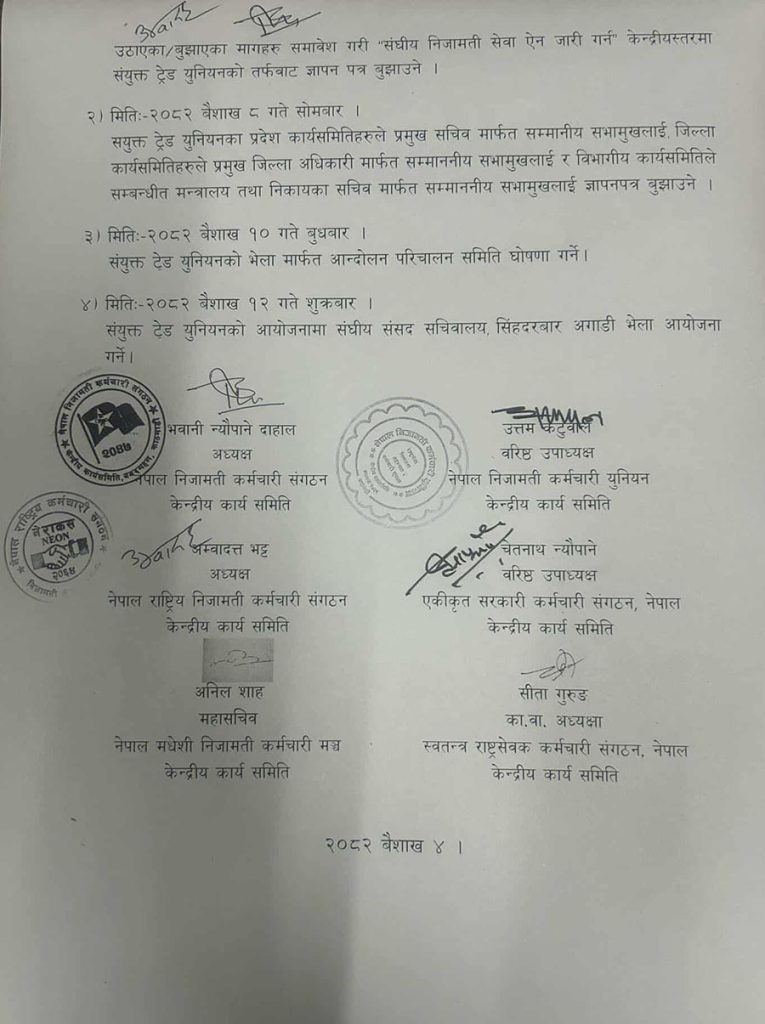 उठाएका/बुझाएका मागहरु समावेश गरी "संघीय निजामती सेवा ऐन जारी गर्न" केन्द्रीयस्तरमा
संयुक्त ट्रेड युनियनको तर्फवाट ज्ञापन पत्र बुझाउने ।
२) मितिः-२०८२ बैशाख ८ गते सोमबार ।
सयुक्त ट्रेड युनियनका प्रदेश कार्यसमितिहरुले प्रमुख सचिव मार्फत सम्मानीय सभामुखलाई, जिल्ला
कार्यसमितिहरुले प्रमुख जिल्ला अधिकारी मार्फत सम्माननीय सभामुखलाई र विभागीय कार्यसमितिले
सम्बन्धीत मन्त्रालय तथा निकायका सचिव मार्फत सम्माननीय सभामुखलाई ज्ञापनपत्र बुझाउने ।
३) मितिः-२०८२ बैशाख १० गते बुधबार ।
संयुक्त ट्रेड युनियनको भेला मार्फत आन्दोलन परिचालन समिति घोषणा गर्ने।
४) मितिः-२०८२ बैशाख १२ गते शुक्रबार ।
संयुक्त टे्रड युनियनको आयोजनामा संघीय संसद सचिवालय, सिंहदरबार अगाडी भेला आयोजना
गर्ने।
नेपाल निजामती कर्मचारी संगठन
२०४७
केन्द्रीय कार्यसमिति
भवानी न्यौपाने दाहाल
अध्यक्ष
नेपाल निजामती कर्मचारी संगठन
केन्द्रीय कार्य समिति
नेपाल निजामती कर्मचारी
उत्तम कटुवाल
वरिष्ठ उपाध्यक्ष
नेपाल निजामती कर्मचारी युनियन
केन्द्रीय कार्य समिति
नेपाल राष्ट्रिय कर्मचारी संगठन
नेराकस
NEON
२०६४
अम्वादत्त भट्ट
अध्यक्ष
नेपाल राष्ट्रिय निजामती कर्मचारी संगठन
केन्द्रीय कार्य समिति
चेतनाथ न्यौपाने
वरिष्ठ उपाध्यक्ष
एकीकृत सरकारी कर्मचारी संगठन, नेपाल
केन्द्रीय कार्य समिति
अनिल शाह
महासचिव
नेपाल मधेशी निजामती कर्मचारी मञ्च
केन्द्रीय कार्य समिति
सीता गुरुङ
का.वा. अध्यक्षा
स्वतन्त्र राष्ट्रसेवक कर्मचारी संगठन, नेपाल
केन्द्रीय कार्य समिति
२०८२ बैशाख ४ ।